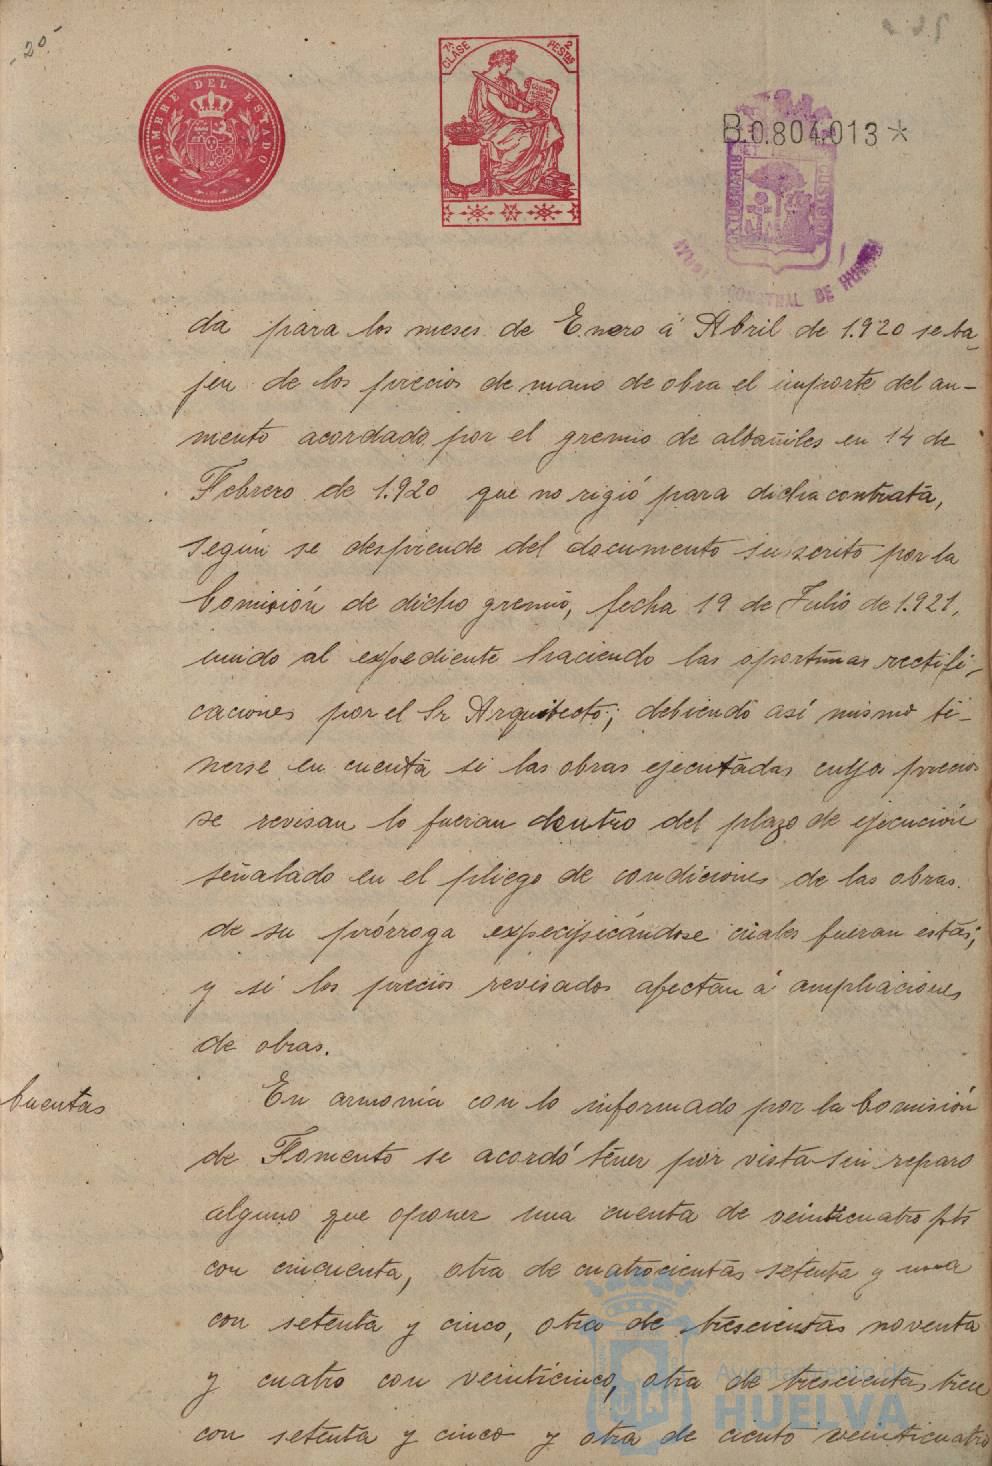 20
TIMBRE DEL ESTADO
7ª CLASE
2 PESTAS
B.0.804.013*
CONSTNAL DE HUELVA
da para los meses de Enero á Abril de 1.920 se ba-
jen de los precios de mano de obra el importe del au-
mento acordado por el gremio de albañiles en 14 de
Febrero de 1.920 que no rigió para dicha contrata,
según se desprende del documento suscrito por la
Comisión de dicho gremio, fecha 19 de Julio de 1.921,
unido al expediente haciendo las oportunas rectifi-
caciones por el Sr Arquitecto; debiendo así mismo te-
nerse en cuenta si las obras ejecutadas cuyos precios
se revisan lo fueran dentro del plazo de ejecución
señalado en el pliego de condiciones de las obras.
de su prórroga expecificándose cuales fueran estas;
y si los precios revisados afectan á ampliaciones
de obras.
Cuentas
En armonía con lo informado por la Comisión
de Fomento se acordó tener por vista sin reparo
alguno que oponer una cuenta de veinticuatro pts
con cincuenta, otra de cuatrocientas setenta y una
con setenta y cinco, otra de trescientas noventa
y cuatro con veinticinco, otra de trescientas trece
con setenta y cinco y otra de ciento veinticuatro
Ayuntamiento de
HUELVA